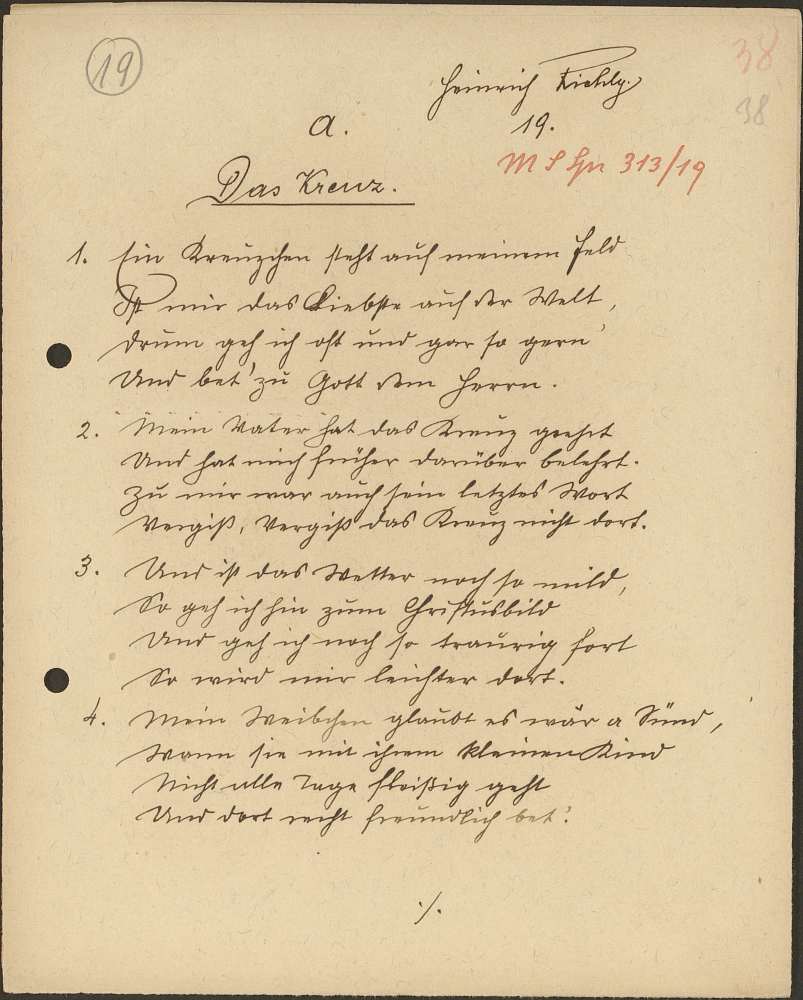 19
38
38
Heinrich
a.
19.
M S Hn 313/19
Das Kreuz.
1. Ein Kreuzchen steht auf meinem Feld
Ist mir das Liebste auf der Welt,
Drum geh ich oft und gar so gern
Und bet' zu Gott dem Herrn.
2. Mein Vater hat das Kreuz geehrt
Und hat mich früher darüber belehrt.
Zu mir war auch sein letztes Wort
Vergiß, Vergiß das Kreuz nicht dort.
3. Und ist das Wetter noch so mild,
So geh ich hin zum Christusbild
Und geh ich noch so traurig fort
So wird mir leichter dort.
4. Mein Weibchen glaubt es wär a Sünd,
Wenn sie mit ihrem kleinen Kind
Nicht alle Tage fleißig geht
Und dort recht freundlich bet'.
./.